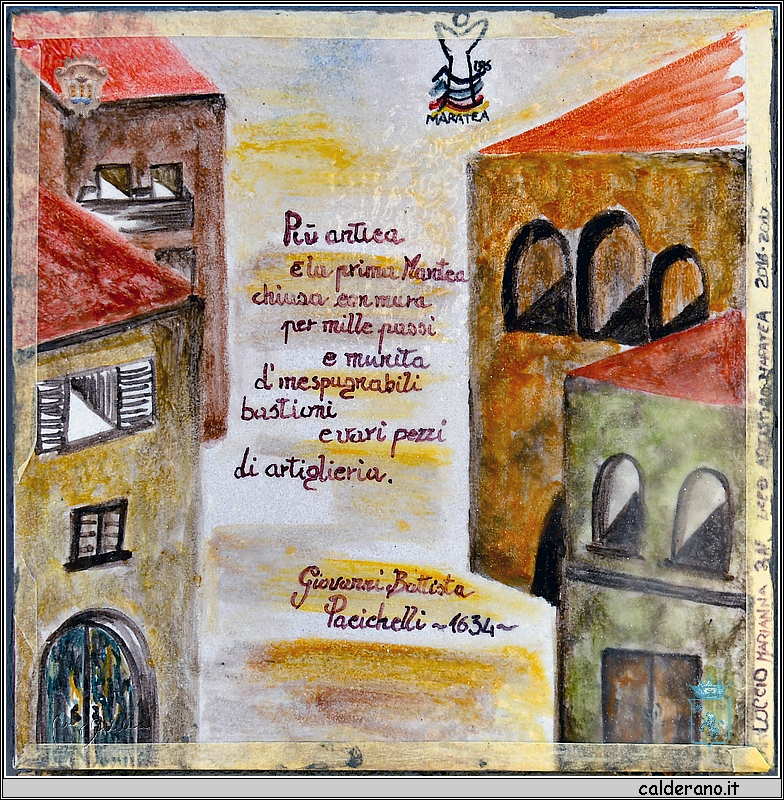 MARATEA
Più antica
è la prima Maratea
chiusa con mura
per mille passi
e munita
d'inespugnabili
bastioni
e vari pezzi
di artiglieria.
Giovanni Battista
Pacichelli ~1634~
LICEO ARTISTICO MARATEA 2016-2017
MARIANNA
calderano.it